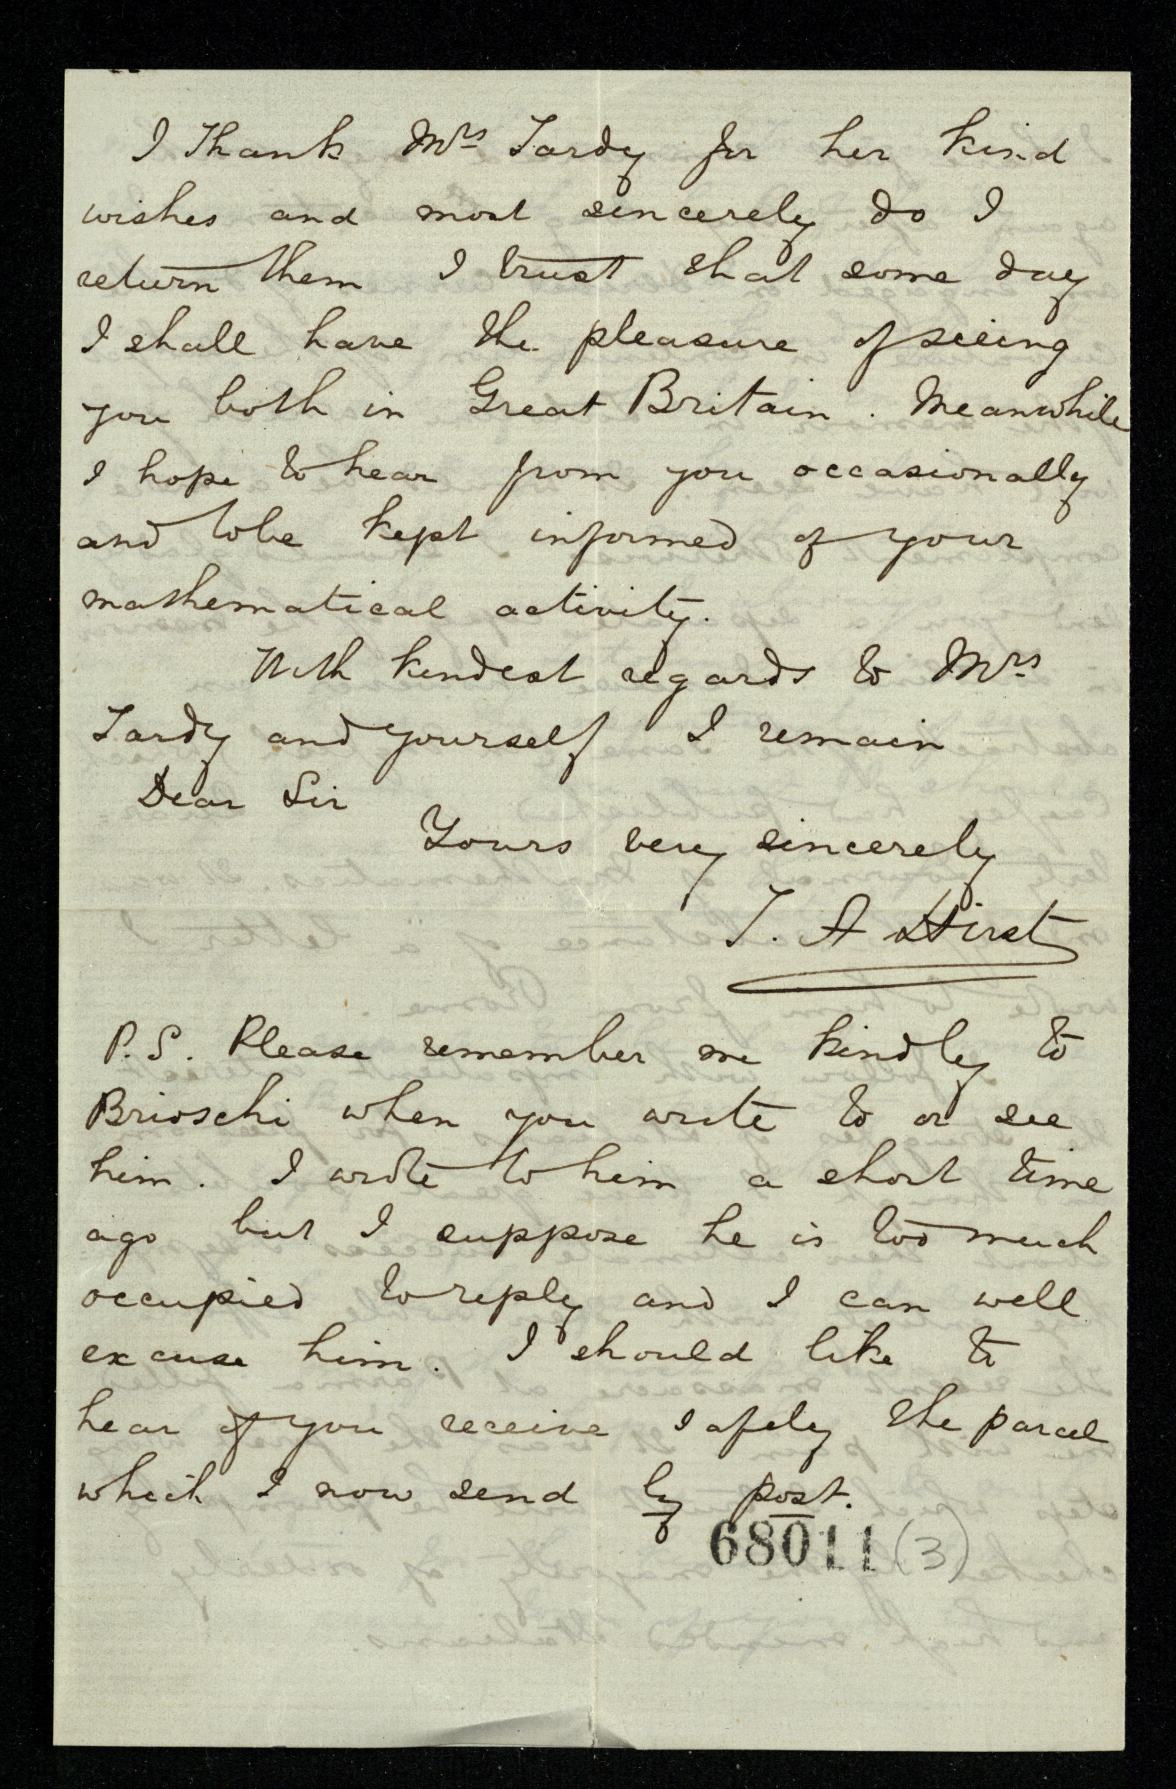 I Thank Mrs Tardy for her kind
wishes and most sincerely do I
return them I trust that some day
I shall have the pleasure of seeing
you both in Great Britain. Meanwhile
I hope to hear from you occasionally
and to be kept informed of your
mathematical activity.
With kindest regards to Mrs
Tardy and yourself I remain
Dear Sir
Yours very sincerely
T. A Hirst
P.S. Please remember me kindly to
Brioschi when you write to or see
him. I wrote to him a short time
ago but I suppose he is too much
occupied to reply and I can well
excuse him. I should like to
hear if you receive safely the parcel
which I now send by post.
68011 (3)